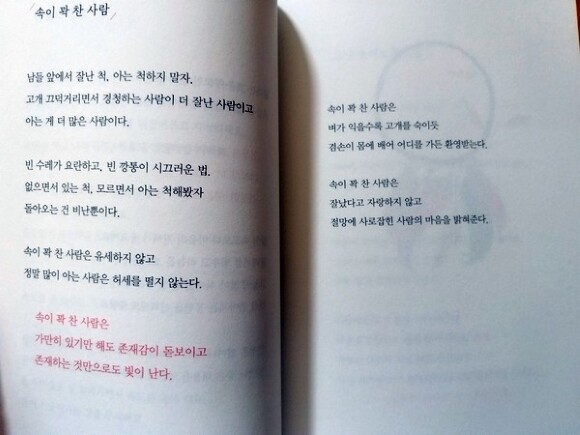 속이 꽉 찬 사람
남들 앞에서 잘난 척, 아는 척하지 말자.
고개 끄덕거리면서 경청하는 사람이 더 잘난 사람이고
아는 게 더 많은 사람이다.
빈 수레가 요란하고, 빈 깡통이 시끄러운 법.
없으면서 있는 척, 모르면서 아는 척해봤자
돌아오는 건 비난뿐이다.
속이 꽉 찬 사람은 유세하지 않고
정말 많이 아는 사람은 허세를 떨지 않는다.
속이 꽉 찬 사람은
가만히 있기만 해도 존재감이 돋보이고
존재하는 것만으로도 빛이 난다.
속이 꽉 찬 사람은
벼가 익을수록 고개를 숙이듯
겸손이 몸에 배어 어디를 가든 환영받는다.
속이 꽉 찬 사람은
잘났다고 자랑하지 않고
절망에 사로잡힌 사람의 마음을 밝혀준다.